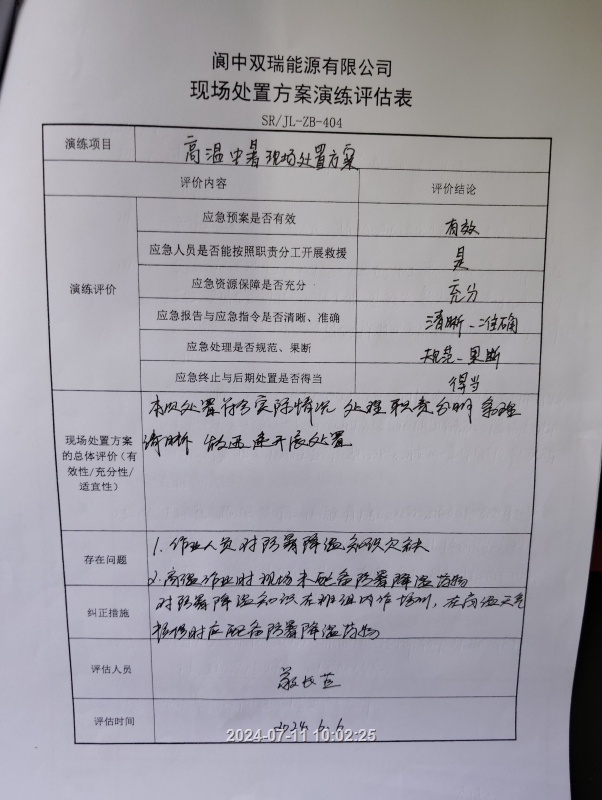 阆中双瑞能源有限公司
现场处置方案演练评估表
SR/JL-ZB-404
演练项目 高温中暑现场处置方案
评价内容 评价结论
演练评价
应急预案是否有效 有效
应急人员是否能按照职责分工开展救援 是
应急资源保障是否充分 充分
应急报告与应急指令是否清晰、准确 清晰、准确
应急处理是否规范、果断 规范、果断
应急终止与后期处置是否得当 得当
现场处置方案的总体评价（有效性/充分性/适宜性）
本次处置符合实际情况 处理职责分明 条理
清晰 迅速开展处置
存在问题
1.作业人员对防暑降温知识欠缺
2.高温作业时现场未配备防暑降温药物
纠正措施
对防暑降温知识在班组内作培训，在高温天气
时应配备防暑降温药物
评估人员
评估时间 2024.6.6
2024-07-11 10:02:25